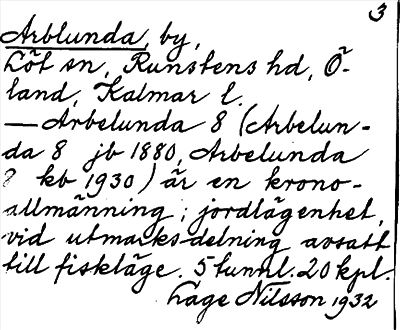 3
Arblunda, by,
Löt sn, Runstens hd, Ö-
land, Kalmar l.
— Arbelunda 8 (Arbelun-
da 8 jb 1880, Arbelunda
8 kb 1930) är en krono-
allmänning; jordlägenhet,
vid utmarks-delning avsatt
till fiskläge. 5 tunnl. 20 kpl.
Låge Nilsson 1932